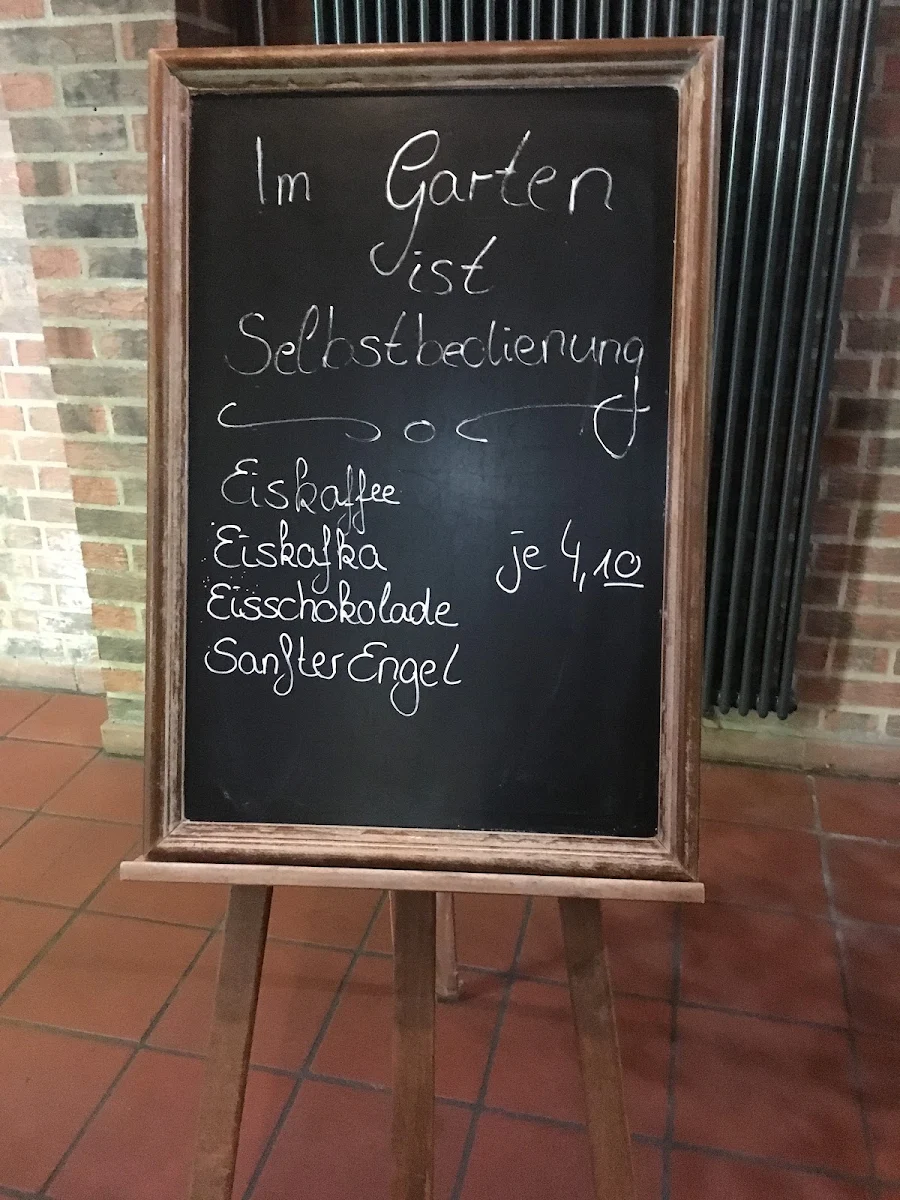 Im Garten
ist
Selbstbedienung
Eiskaffee
Eiskafka
je 4,10
Eisschokolade
Sanfter Engel